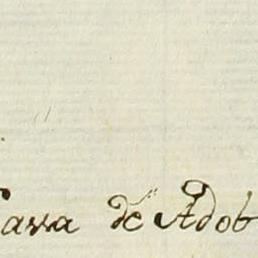 ava de Adob